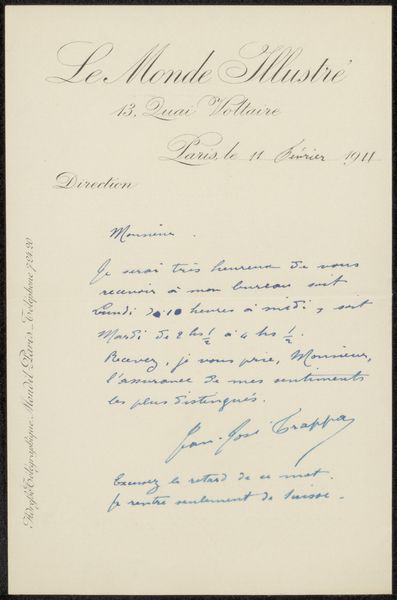 Le Monde Illustré
13, Quai Voltaire
Paris, le 11 Février 1911
Direction
Monsieur.
Je serai très heureux de vous
recevoir à mon bureau soit
Lundi de 10 heures à midi, soit
Mardi de 2 hs ½ à 4 hs ½.
Recevez, je vous prie, Monsieur,
l'assurance de mes sentiments
les plus distingués.
Jean-José Frappa
Excusez le retard de ce mot.
Je rentre seulement de Suisse.
Adresse Télégraphique, Mondil Paris _ Téléphone 724.20